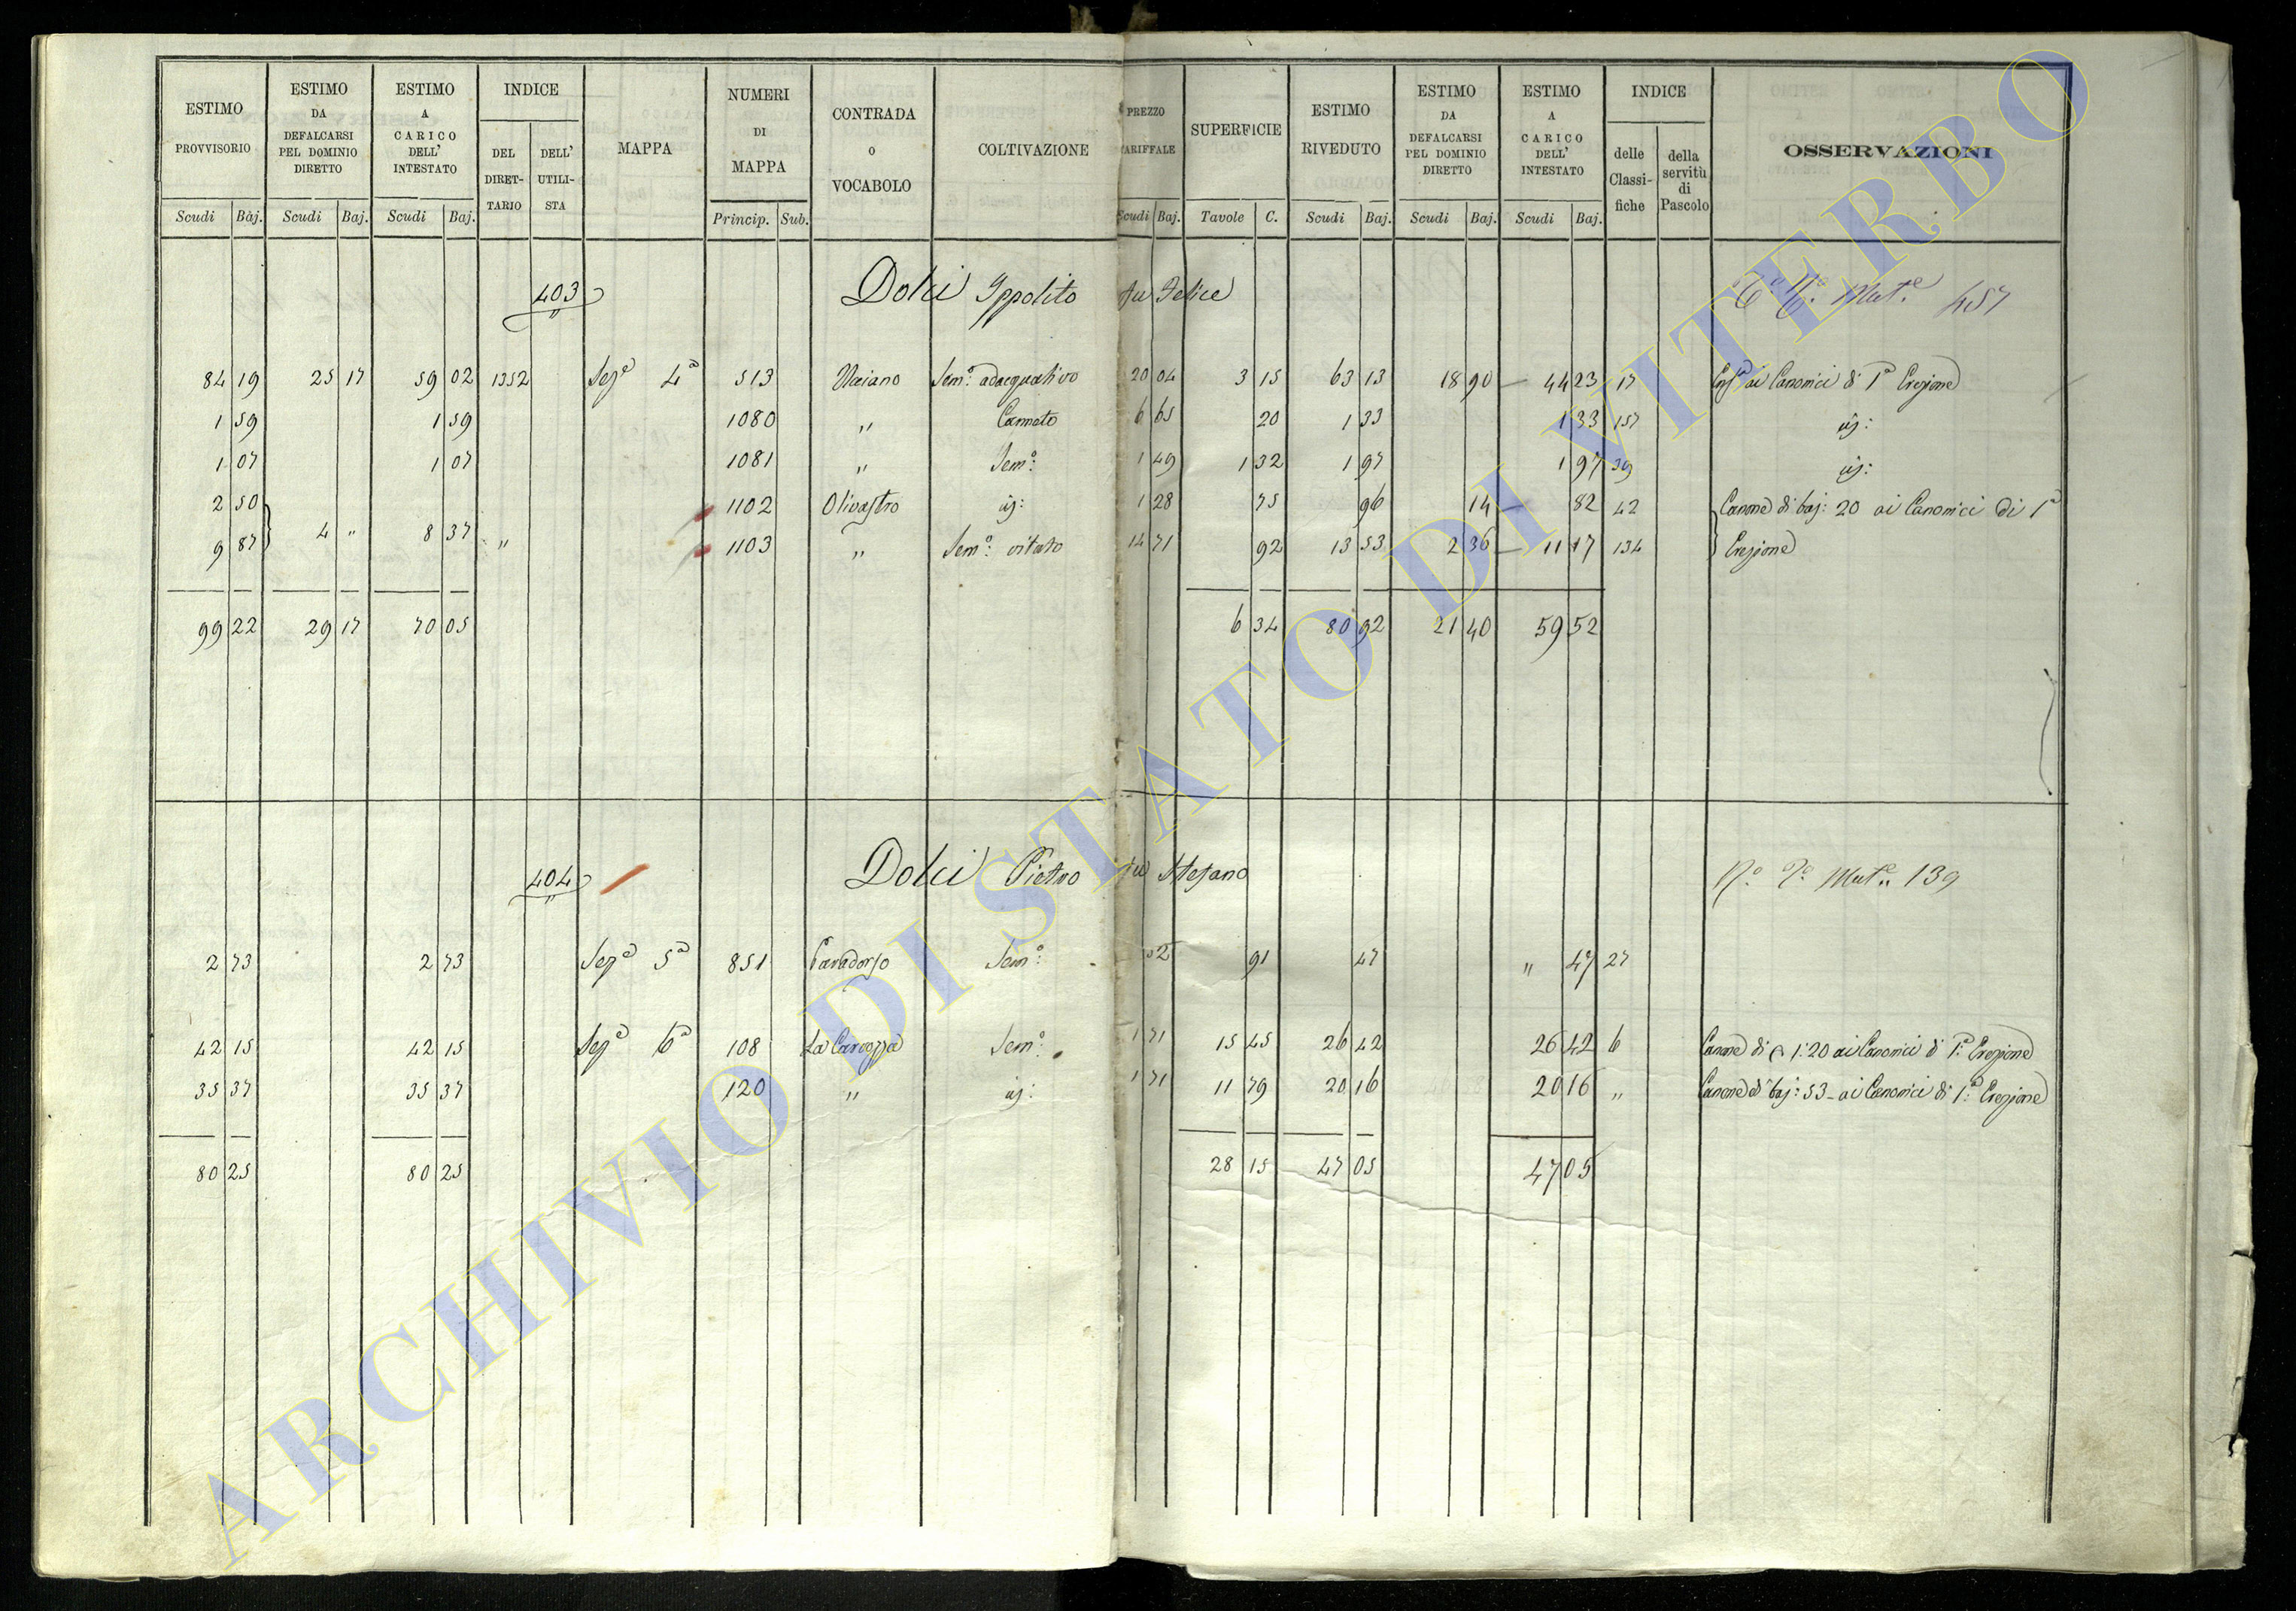 ESTIMO PROVVISORIO | ESTIMO DA DEFALCARSI PEL DOMINIO DIRETTO | ESTIMO A CARICO DELL' INTESTATO | INDICE | MAPPA | NUMERI DI MAPPA | CONTRADA O VOCABOLO | COLTIVAZIONE | PREZZO TARIFFALE | SUPERFICIE | ESTIMO RIVEDUTO | ESTIMO DA DEFALCARSI PEL DOMINIO DIRETTO | ESTIMO A CARICO DELL' INTESTATO | INDICE | OSSERVAZIONI
DEL DIRETTARIO | DELL' UTILISTA | delle Classifiche | della servitù di Pascolo
Scudi | Baj. | Scudi | Baj. | Scudi | Baj. | Princip. | Sub. | Scudi | Baj. | Tavole | C. | Scudi | Baj. | Scudi | Baj. | Scudi | Baj.
403 Dolci Ippolito fu Felice 457
84 19 | 25 17 | 59 02 | 1352 | Sezе 4a | 513 | Sem: adacquativo | 20 04 | 3 15 | 63 13 | 18 90 — | 44 23 | 17 | ai Canonici di 1a Erezione
1 59 | 1 59 | 1080 | " | Canneto | 6 65 | 20 | 1 33 | 1 33 | 157
1 07 | 1 07 | 1081 | " | Sem: | 1 49 | 1 32 | 1 97 | 1 97 | 39
2 50 | 1102 | Olivastro | 1 28 | 75 | 96 | 14 — | 82 | 42 | Canone di baj: 20 ai Canonici di 1a
9 87 | 4 " | 8 37 | " | 1103 | " | Sem: vitato | 14 71 | 92 | 13 53 | 2 36 — | 11 17 | 134 | Erezione
99 22 | 29 17 | 70 05 | 6 34 | 80 92 | 21 40 | 59 52
404 Dolci Pietro fu Stefano | 139
2 73 | 2 73 | Seze 5a | 851 | Sem: | 52 | 91 | 47 | " 47 | 27
42 15 | 42 15 | Seze 6a | 108 | Sem: | 1 71 | 15 45 | 26 42 | 26 42 | 6 | Canone di 1:20 ai Canonici di 1a Erezione
35 37 | 35 37 | 120 | " | 1 71 | 11 79 | 20 16 | 20 16 | " | Canone di baj: 53 - ai Canonici di 1a Erezione
80 25 | 80 25 | 28 15 | 47 05 | 47 05
ARCHIVIO DI STATO DI VITERBO